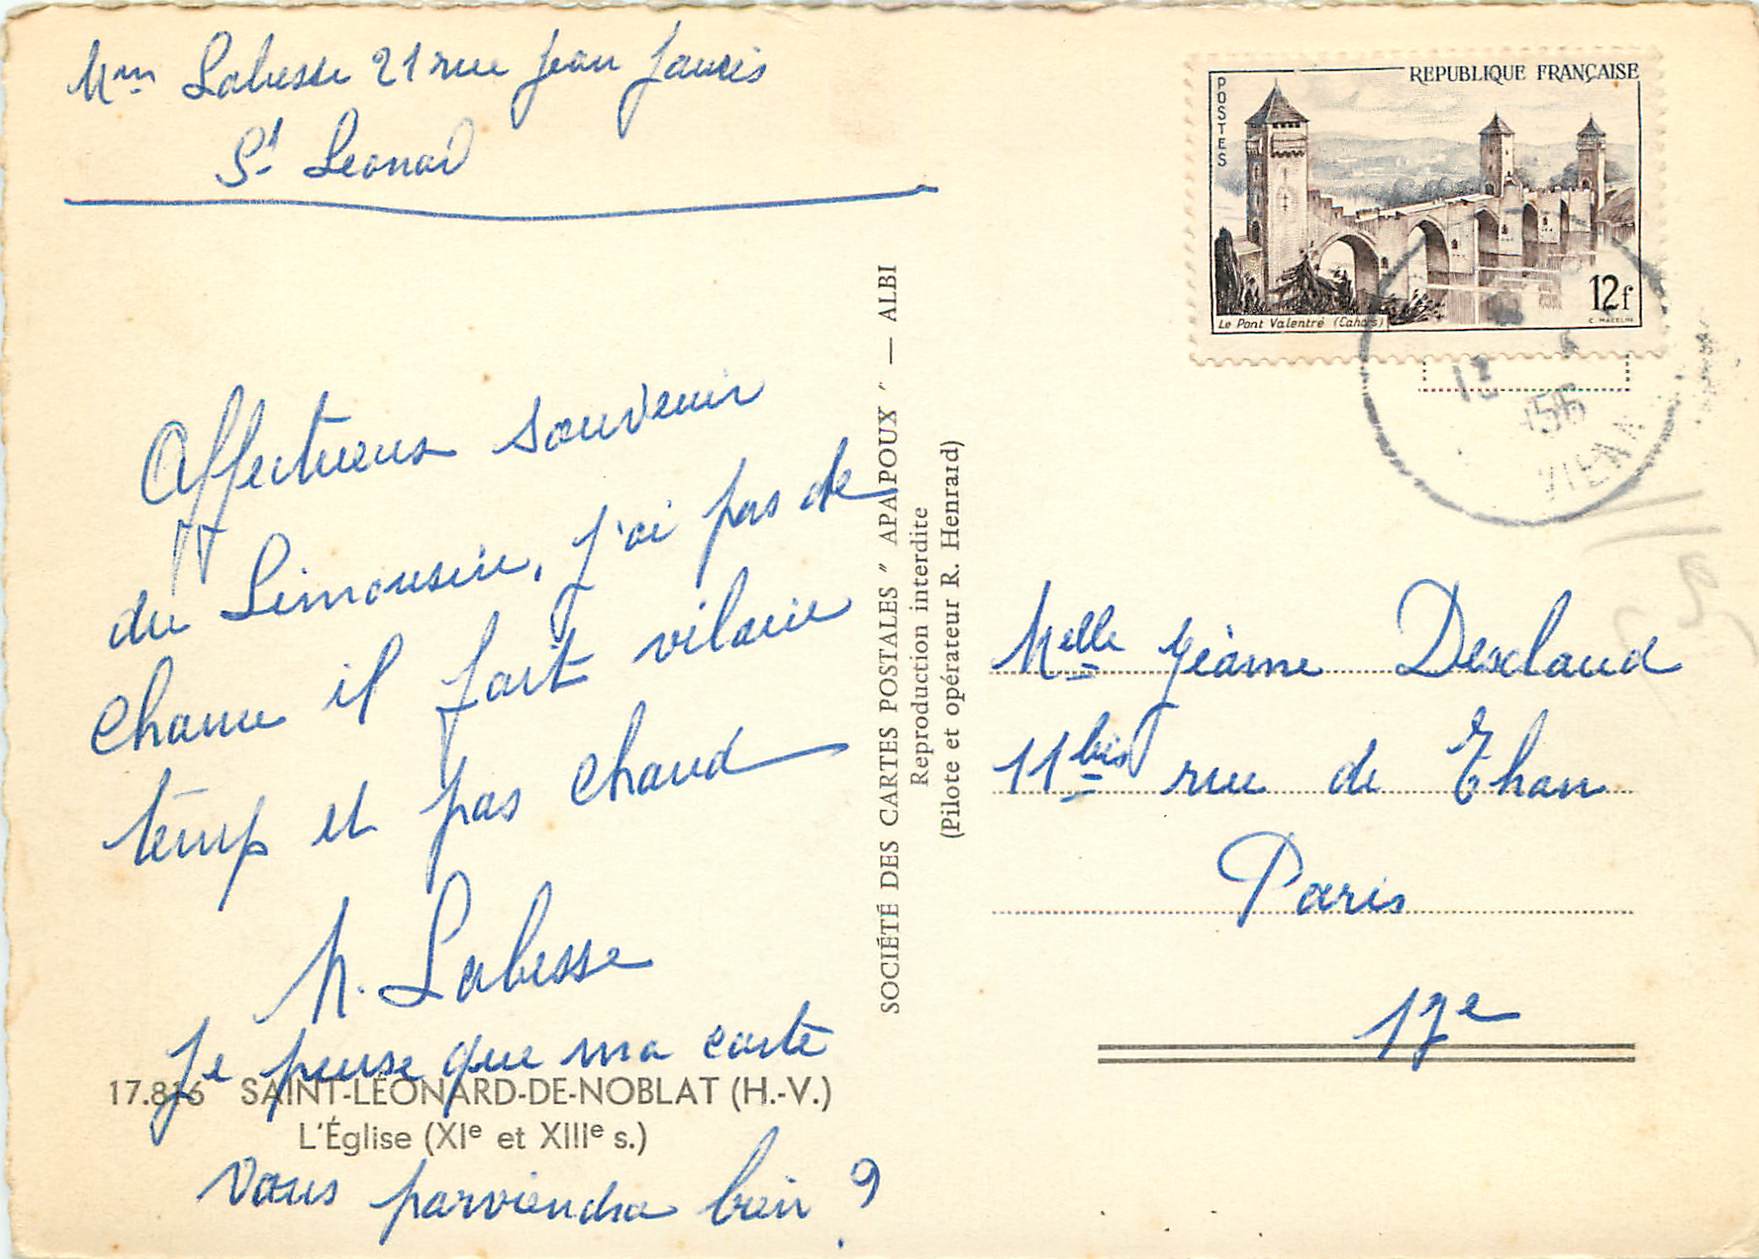 Mme Labesse 21 rue Jean Jaurès
St Leonard
Affectueux souvenir
du Limousin, j'ai pas de
chance il fait vilain
temp et pas chaud
M. Labesse
Je pense que ma carte
17.816 SAINT-LÉONARD-DE-NOBLAT (H.-V.)
L'Église (XIe et XIIIe s.)
vous parviendra bien ?
SOCIÉTÉ DES CARTES POSTALES " APA POUX " — ALBI
Reproduction interdite
(Pilote et opérateur R. Henrard)
REPUBLIQUE FRANÇAISE
POSTES
12f
Le Pont Valentré (Cahors)
C. MAZELIN
12
1956
VIENN
Melle Jeanne Desclaud
11bis rue de Thann
Paris
17e